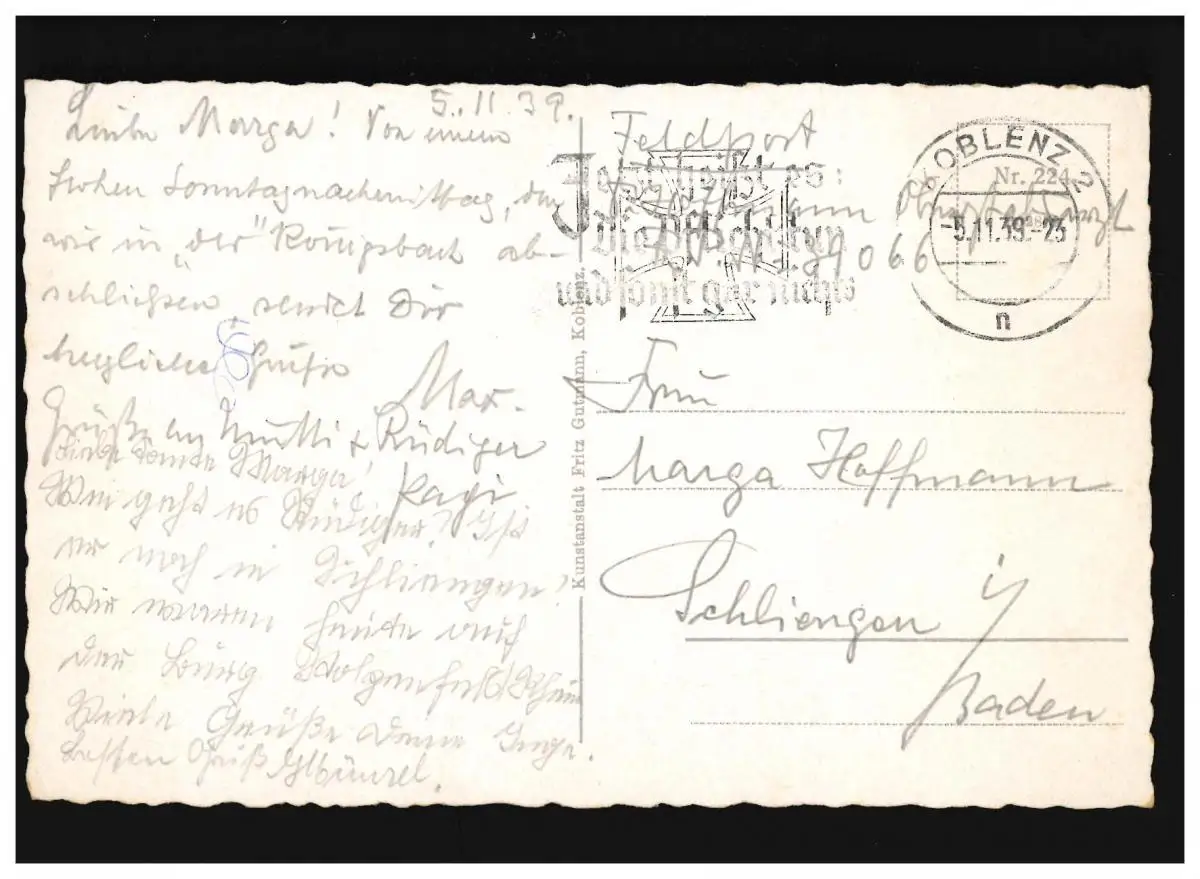 5.11.39.
Liebe Marga! Von einem
frohen Sonntagnachmittag, den
wir in "der" Königsbach ab-
schließen, sendet Dir
herzliche Grüße
Max.
Grüße an Mutti & Rüdiger
Kagi
Liebe Tante Marga!
Wie geht es Rüdiger? Ist
er noch in Schliengen?
Wir waren heute auf
der Burg Stolzenfels/Rhein
Viele Grüße Deine Inge.
Besten Gruß
Kunstanstalt Fritz Gutmann, Koblenz.
Feldpost
Jetzt heißt es:
die Pflicht tun
und sonst gar nichts
39066
KOBLENZ 2
-5.11.39.-23
n
Nr. 224
Frau
Marga Hoffmann
Schliengen i/
Baden